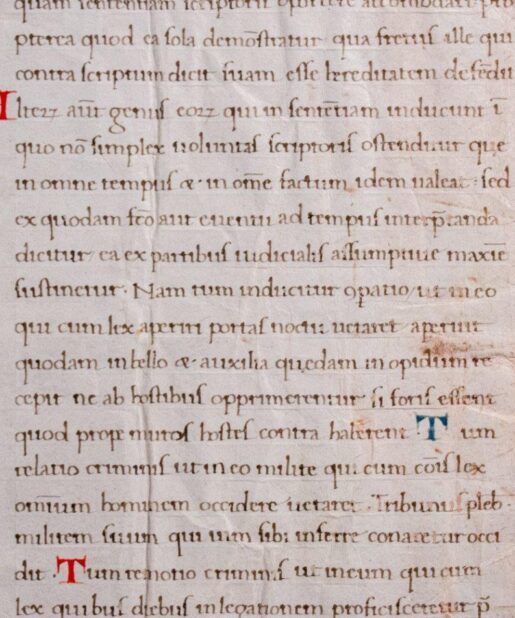 quam sententiam scriptoris oportere accommodari prop
pterea quod ea sola demōstratur qua fretus ille qui
contra scriptum dicit suam esse hereditatem defēdit
Alterꝝ aūt genus eoꝝ qui in sentētiam inducunt ī
quo nō simplex uoluntas scriptoris ostenditur que
in omne tempus & in om̄e factum idem ualeat· sed
ex quodam fc̄o aut euentu ad tempus interp̄tanda
dicitur ea ex partibus iudicialis assumptiue maxīe
sustinetur· Nam tum inducitur ꝯparatio ut in eo
qui cum lex aperiri portas noctu uetaret aperuit
quodam in bello & auxilia quedam in opidum re
cepit ne ab hostibus opprimerentur si foris essent
quod prope muros hostes contra haberent· Tum
relatio criminis ut in eo milite qui cum cōis lex
omīum hominem occidere uetaret· Tribunū pleb·
militem suum qui uim sibi inferre conaretur occi
dit· Tum remotio criminis ut in eum qui cum
lex quibus diebus in legationem proficisceretur p̄